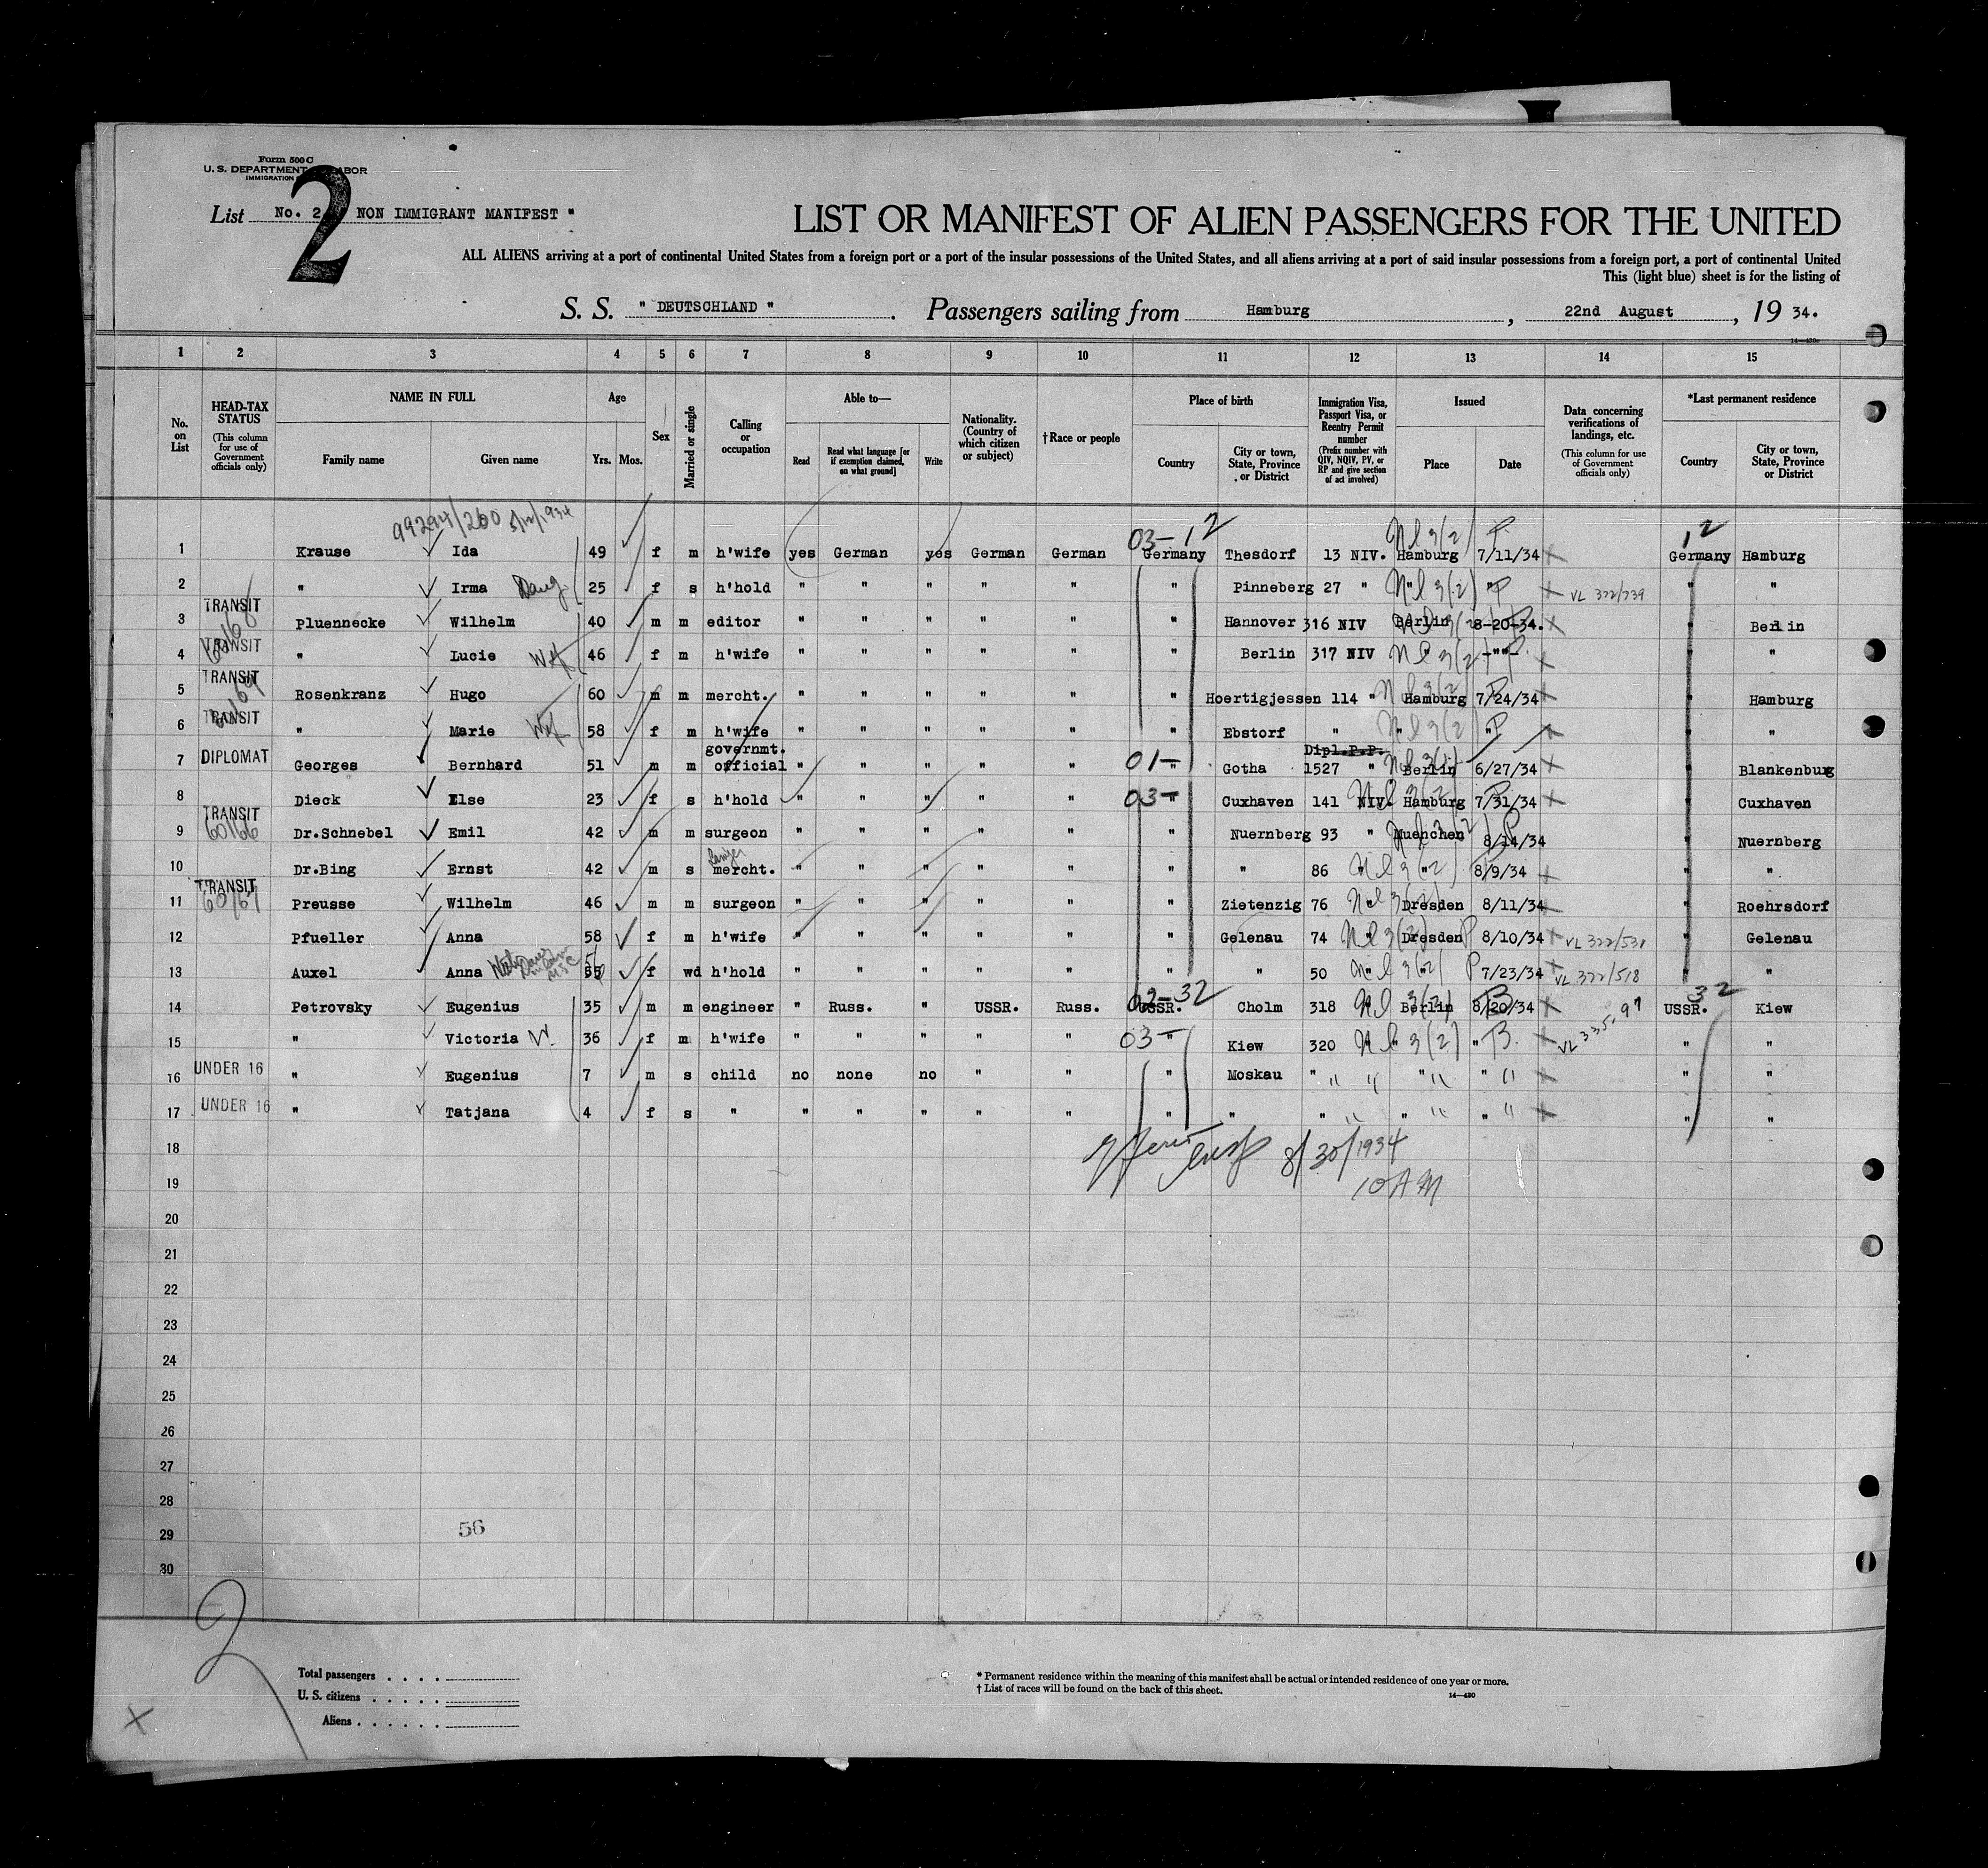 Form 500 C
U. S. DEPARTMENT LABOR
IMMIGRATION
2
List No. 2 NON IMMIGRANT MANIFEST "
LIST OR MANIFEST OF ALIEN PASSENGERS FOR THE UNITED
ALL ALIENS arriving at a port of continental United States from a foreign port or a port of the insular possessions of the United States, and all aliens arriving at a port of said insular possessions from a foreign port, a port of continental United
This (light blue) sheet is for the listing of
S. S. " DEUTSCHLAND " . Passengers sailing from Hamburg , 22nd August , 19 34.
1 2 3 4 5 6 7 8 9 10 11 12 13 14 15
No. on List
HEAD-TAX STATUS (This column for use of Government officials only)
NAME IN FULL Family name Given name
Age Yrs. Mos.
Sex
Married or single
Calling or occupation
Able to— Read Read what language [or if exemption claimed, on what ground] Write
Nationality. (Country of which citizen or subject)
†Race or people
Place of birth Country City or town, State, Province or District
Immigration Visa, Passport Visa, or Reentry Permit number (Prefix number with QIV, NQIV, PV, or RP and give section of act involved)
Issued Place Date
Data concerning verifications of landings, etc. (This column for use of Government officials only)
*Last permanent residence Country City or town, State, Province or District
99294/260 03-12 Nl 3(2) P 12
1 Krause Ida 49 f m h'wife yes German yes German German Germany Thesdorf 13 NIV. Hamburg 7/11/34 Germany Hamburg
2 " Irma Daug. 25 f s h'hold " " " " " " Pinneberg 27 " Nl 3(2) " P VL 322/739 " "
TRANSIT
3 Pluennecke Wilhelm 40 m m editor " " " " " " Hannover 316 NIV Berlin 8-20-34. " Berlin
TRANSIT
4 " Lucie Wife 46 f m h'wife " " " " " " Berlin 317 NIV Nl 3(2) -"- P " "
TRANSIT
5 Rosenkranz Hugo 60 m m mercht. " " " " " " Hoertigjessen 114 " Hamburg 7/24/34 " Hamburg
TRANSIT
6 " Marie Wife 58 f m h'wife " " " " " " Ebstorf " Nl 3(2) " P " "
7 DIPLOMAT Georges Bernhard 51 m m governmt. official " " " " " 01- " Gotha Dipl.P.P. 1527 " Berlin 6/27/34 " Blankenburg
8 Dieck Else 23 f s h'hold " " " " " 03- " Cuxhaven 141 NIV. Hamburg 7/31/34 " Cuxhaven
TRANSIT
9 60166 Dr.Schnebel Emil 42 m m surgeon " " " " " " Nuernberg 93 " Muenchen 8/14/34 " Nuernberg
10 Dr.Bing Ernst 42 m s mercht. " " " " " " " 86 Nl 3(2) " 8/9/34 " "
TRANSIT
11 60167 Preusse Wilhelm 46 m m surgeon " " " " " " Zietenzig 76 " Dresden 8/11/34 " Roehrsdorf
12 Pfueller Anna 58 f m h'wife " " " " " " Gelenau 74 " Dresden P 8/10/34 VL 322/531 " Gelenau
13 Auxel Anna 55 f wd h'hold " " " " " " " 50 Nl 3(2) P 7/23/34 VL 322/518 " "
14 Petrovsky Eugenius 35 m m engineer " Russ. " USSR. Russ. 02-32 USSR. Cholm 318 Nl 3(2) Berlin 8/20/34 USSR. 32 Kiew
15 " Victoria W. 36 f m h'wife " " " " " 03- " Kiew 320 Nl 3(2) " B. " "
16 UNDER 16 " Eugenius 7 m s child no none no " " " Moskau " " " " "
17 UNDER 16 " Tatjana 4 f s " " " " " " " " " " " " "
18 8/30/1934
19 10 AM
20
21
22
23
24
25
26
27
28
29 56
30
2
Total passengers . . . .
U. S. citizens . . . . .
Aliens . . . . . .
* Permanent residence within the meaning of this manifest shall be actual or intended residence of one year or more.
† List of races will be found on the back of this sheet.
14—430